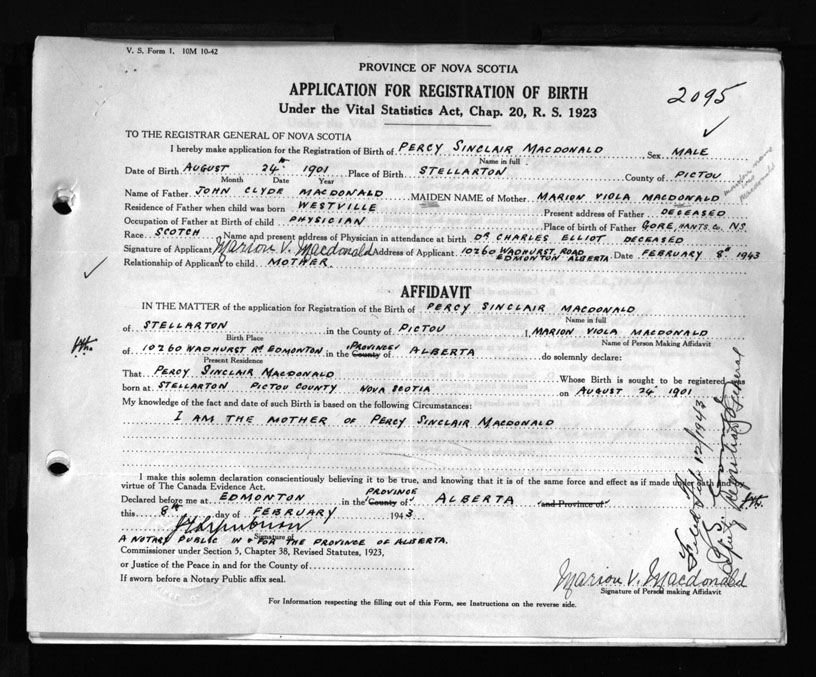 V. S. Form 1. 10M 10-42
PROVINCE OF NOVA SCOTIA
APPLICATION FOR REGISTRATION OF BIRTH
2095
Under the Vital Statistics Act, Chap. 20, R. S. 1923
TO THE REGISTRAR GENERAL OF NOVA SCOTIA
I hereby make application for the Registration of Birth of PERCY SINCLAIR MACDONALD Sex MALE
Name in full
Date of Birth AUGUST 24th 1901 Place of Birth STELLARTON County of PICTOU
Month Date Year
Name of Father JOHN CLYDE MACDONALD MAIDEN NAME of Mother MARION VIOLA MACDONALD
Residence of Father when child was born WESTVILLE Present address of Father DECEASED
Occupation of Father at Birth of child PHYSICIAN Place of birth of Father GORE, HANTS. Co. N.S.
Race SCOTCH Name and present address of Physician in attendance at birth DR CHARLES ELLIOT DECEASED
Signature of Applicant Marion V. Macdonald Address of Applicant 10260 WADHURST ROAD EDMONTON ALBERTA Date FEBRUARY 8th 1943
Relationship of Applicant to child MOTHER
AFFIDAVIT
IN THE MATTER of the application for Registration of the Birth of PERCY SINCLAIR MACDONALD
Name in full
of STELLARTON in the County of PICTOU I, MARION VIOLA MACDONALD
Birth Place Name of Person Making Affidavit
of 10260 WADHURST Rd EDMONTON in the County PROVINCE of ALBERTA do solemnly declare:
Present Residence
That PERCY SINCLAIR MACDONALD Whose Birth is sought to be registered, was
born at STELLARTON PICTOU COUNTY NOVA SCOTIA on AUGUST 24th 1901
My knowledge of the fact and date of such Birth is based on the following Circumstances:
I AM THE MOTHER OF PERCY SINCLAIR MACDONALD
I make this solemn declaration conscientiously believing it to be true, and knowing that it is of the same force and effect as if made under oath and by
virtue of The Canada Evidence Act.
Declared before me at EDMONTON in the County PROVINCE of ALBERTA (and Province of
this 8th day of FEBRUARY 1943
Signature of
A NOTARY PUBLIC IN & FOR THE PROVINCE OF ALBERTA.
Commissioner under Section 5, Chapter 38, Revised Statutes, 1923,
or Justice of the Peace in and for the County of
If sworn before a Notary Public affix seal.
Marion V. Macdonald
Signature of Person making Affidavit
For Information respecting the filling out of this Form, see Instructions on the reverse side.
Filed Feb 12/1943
Deputy Registrar General